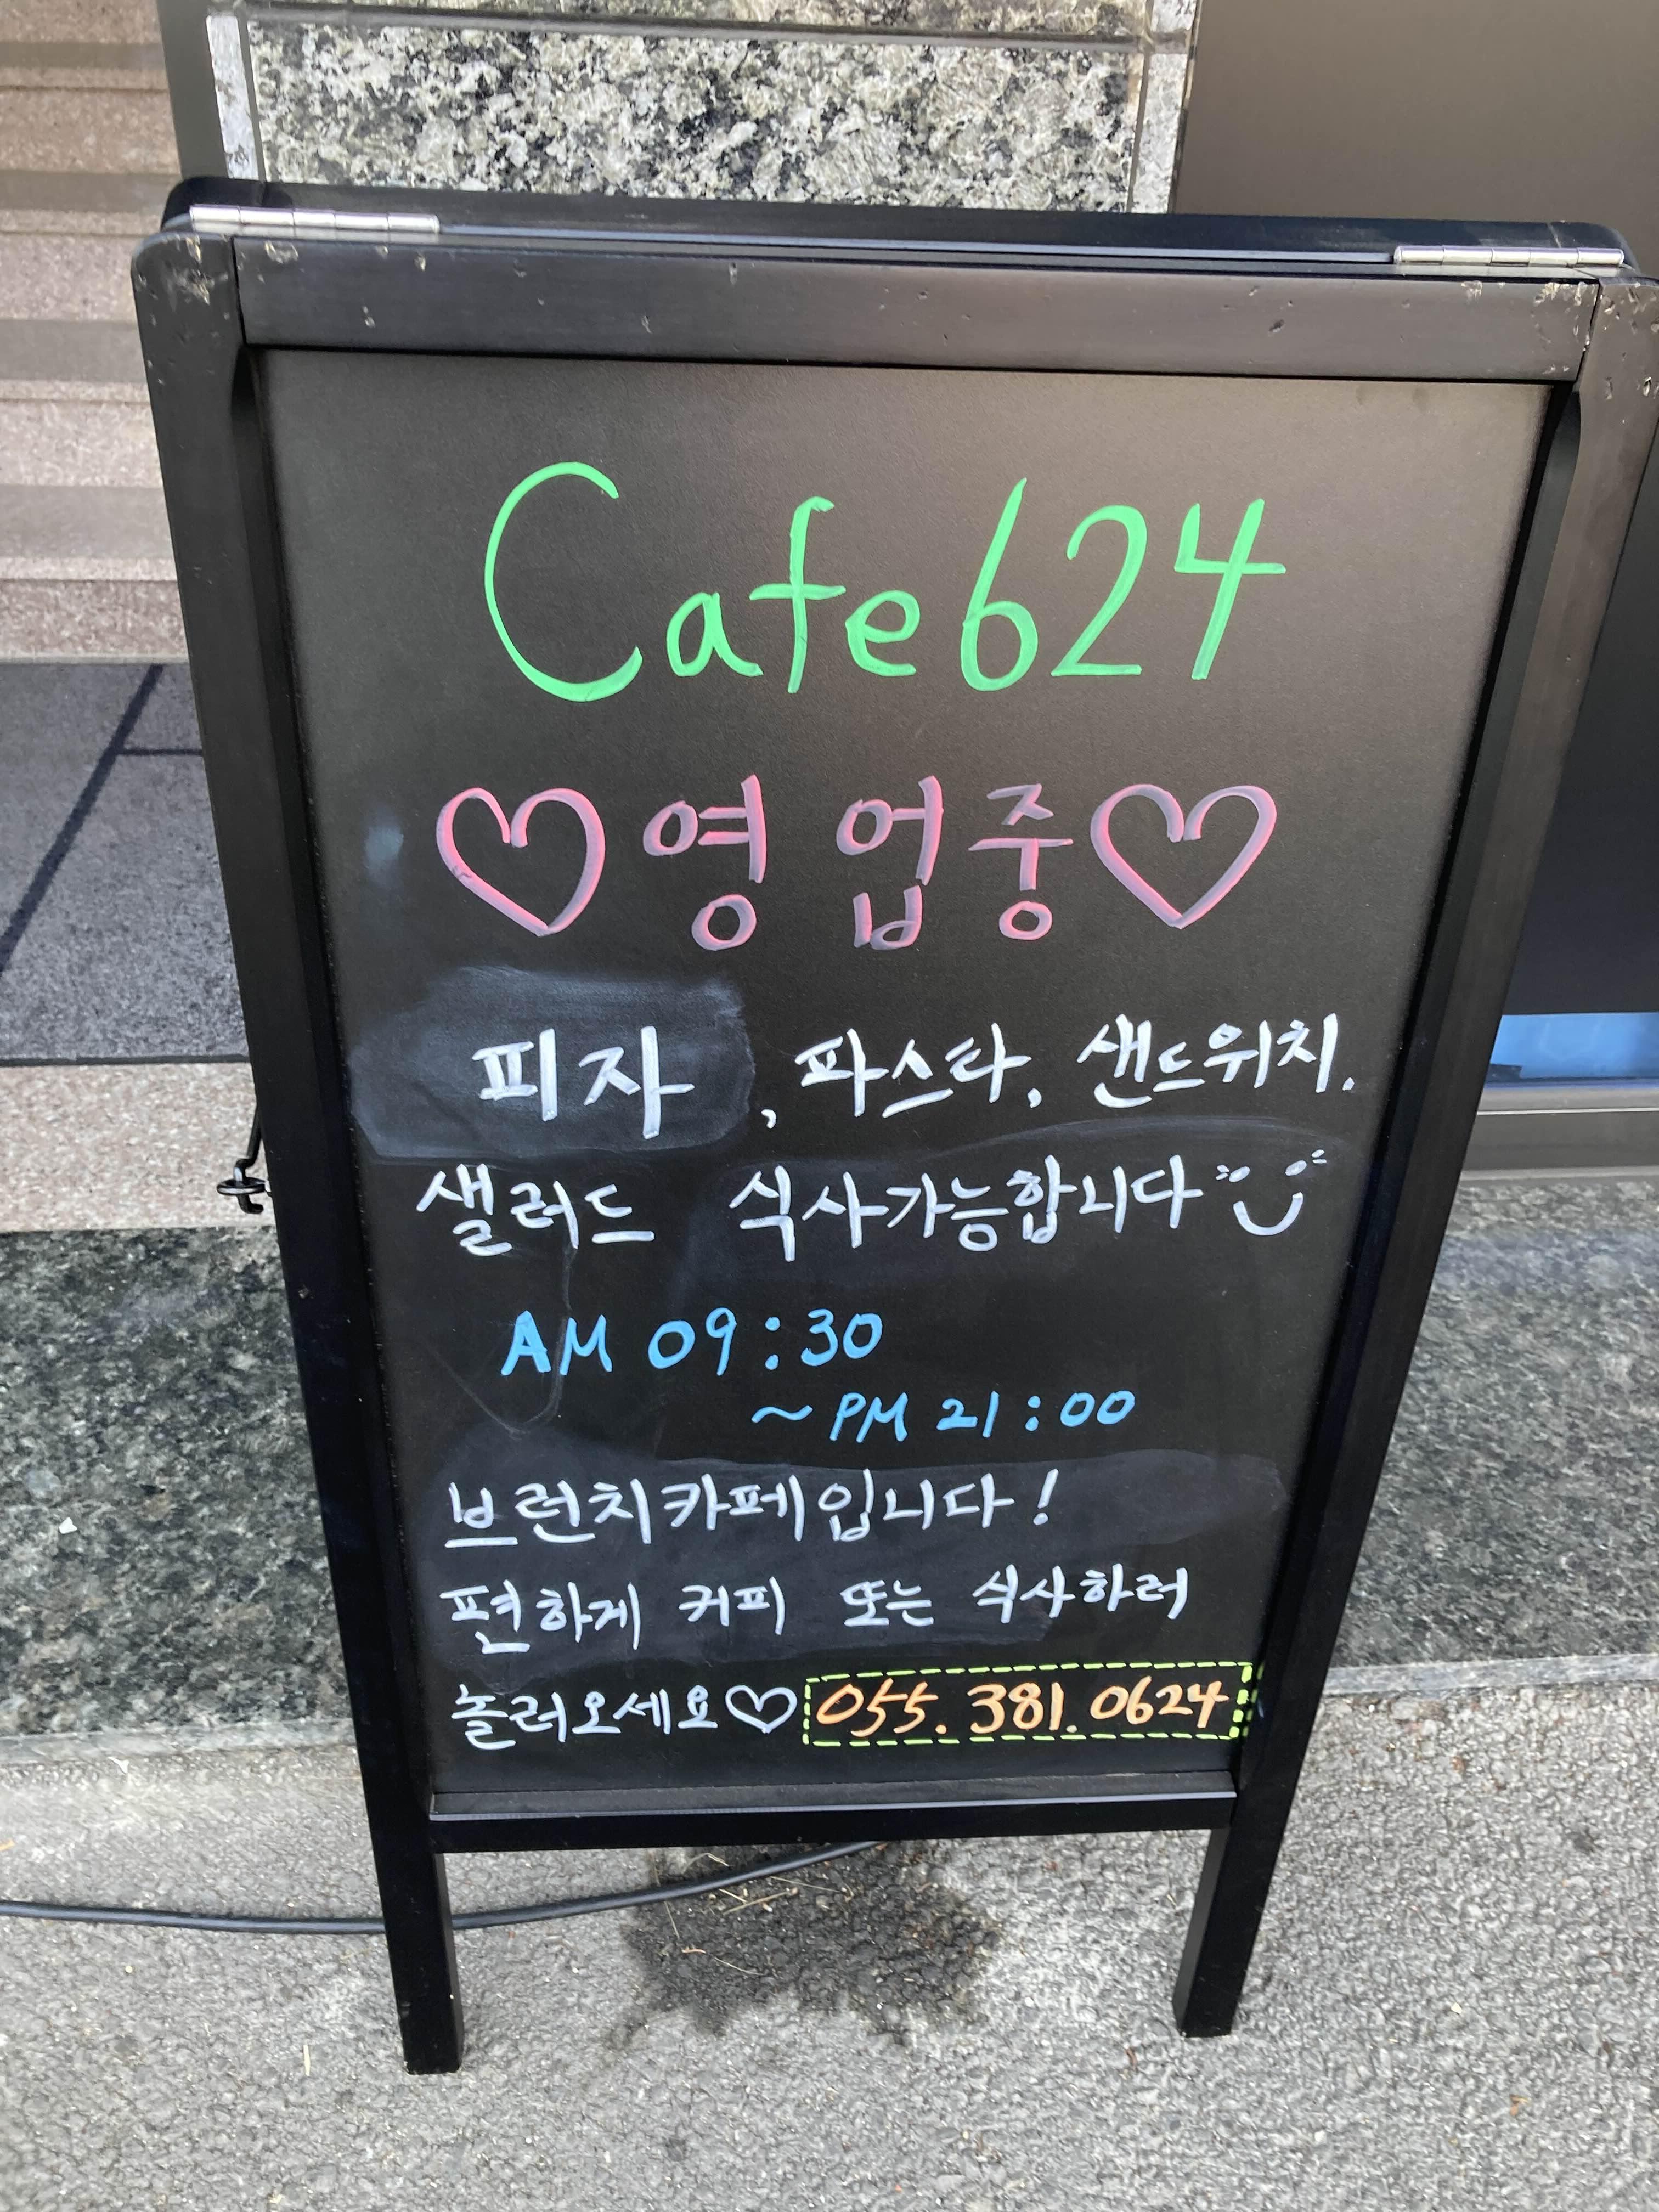 Cafe624
♡영업중♡
피자, 파스타, 샌드위치.
샐러드 식사가능합니다
AM 09:30
~PM 21:00
브런치카페입니다!
편하게 커피 또는 식사하러
놀러오세요♡ 055.381.0624